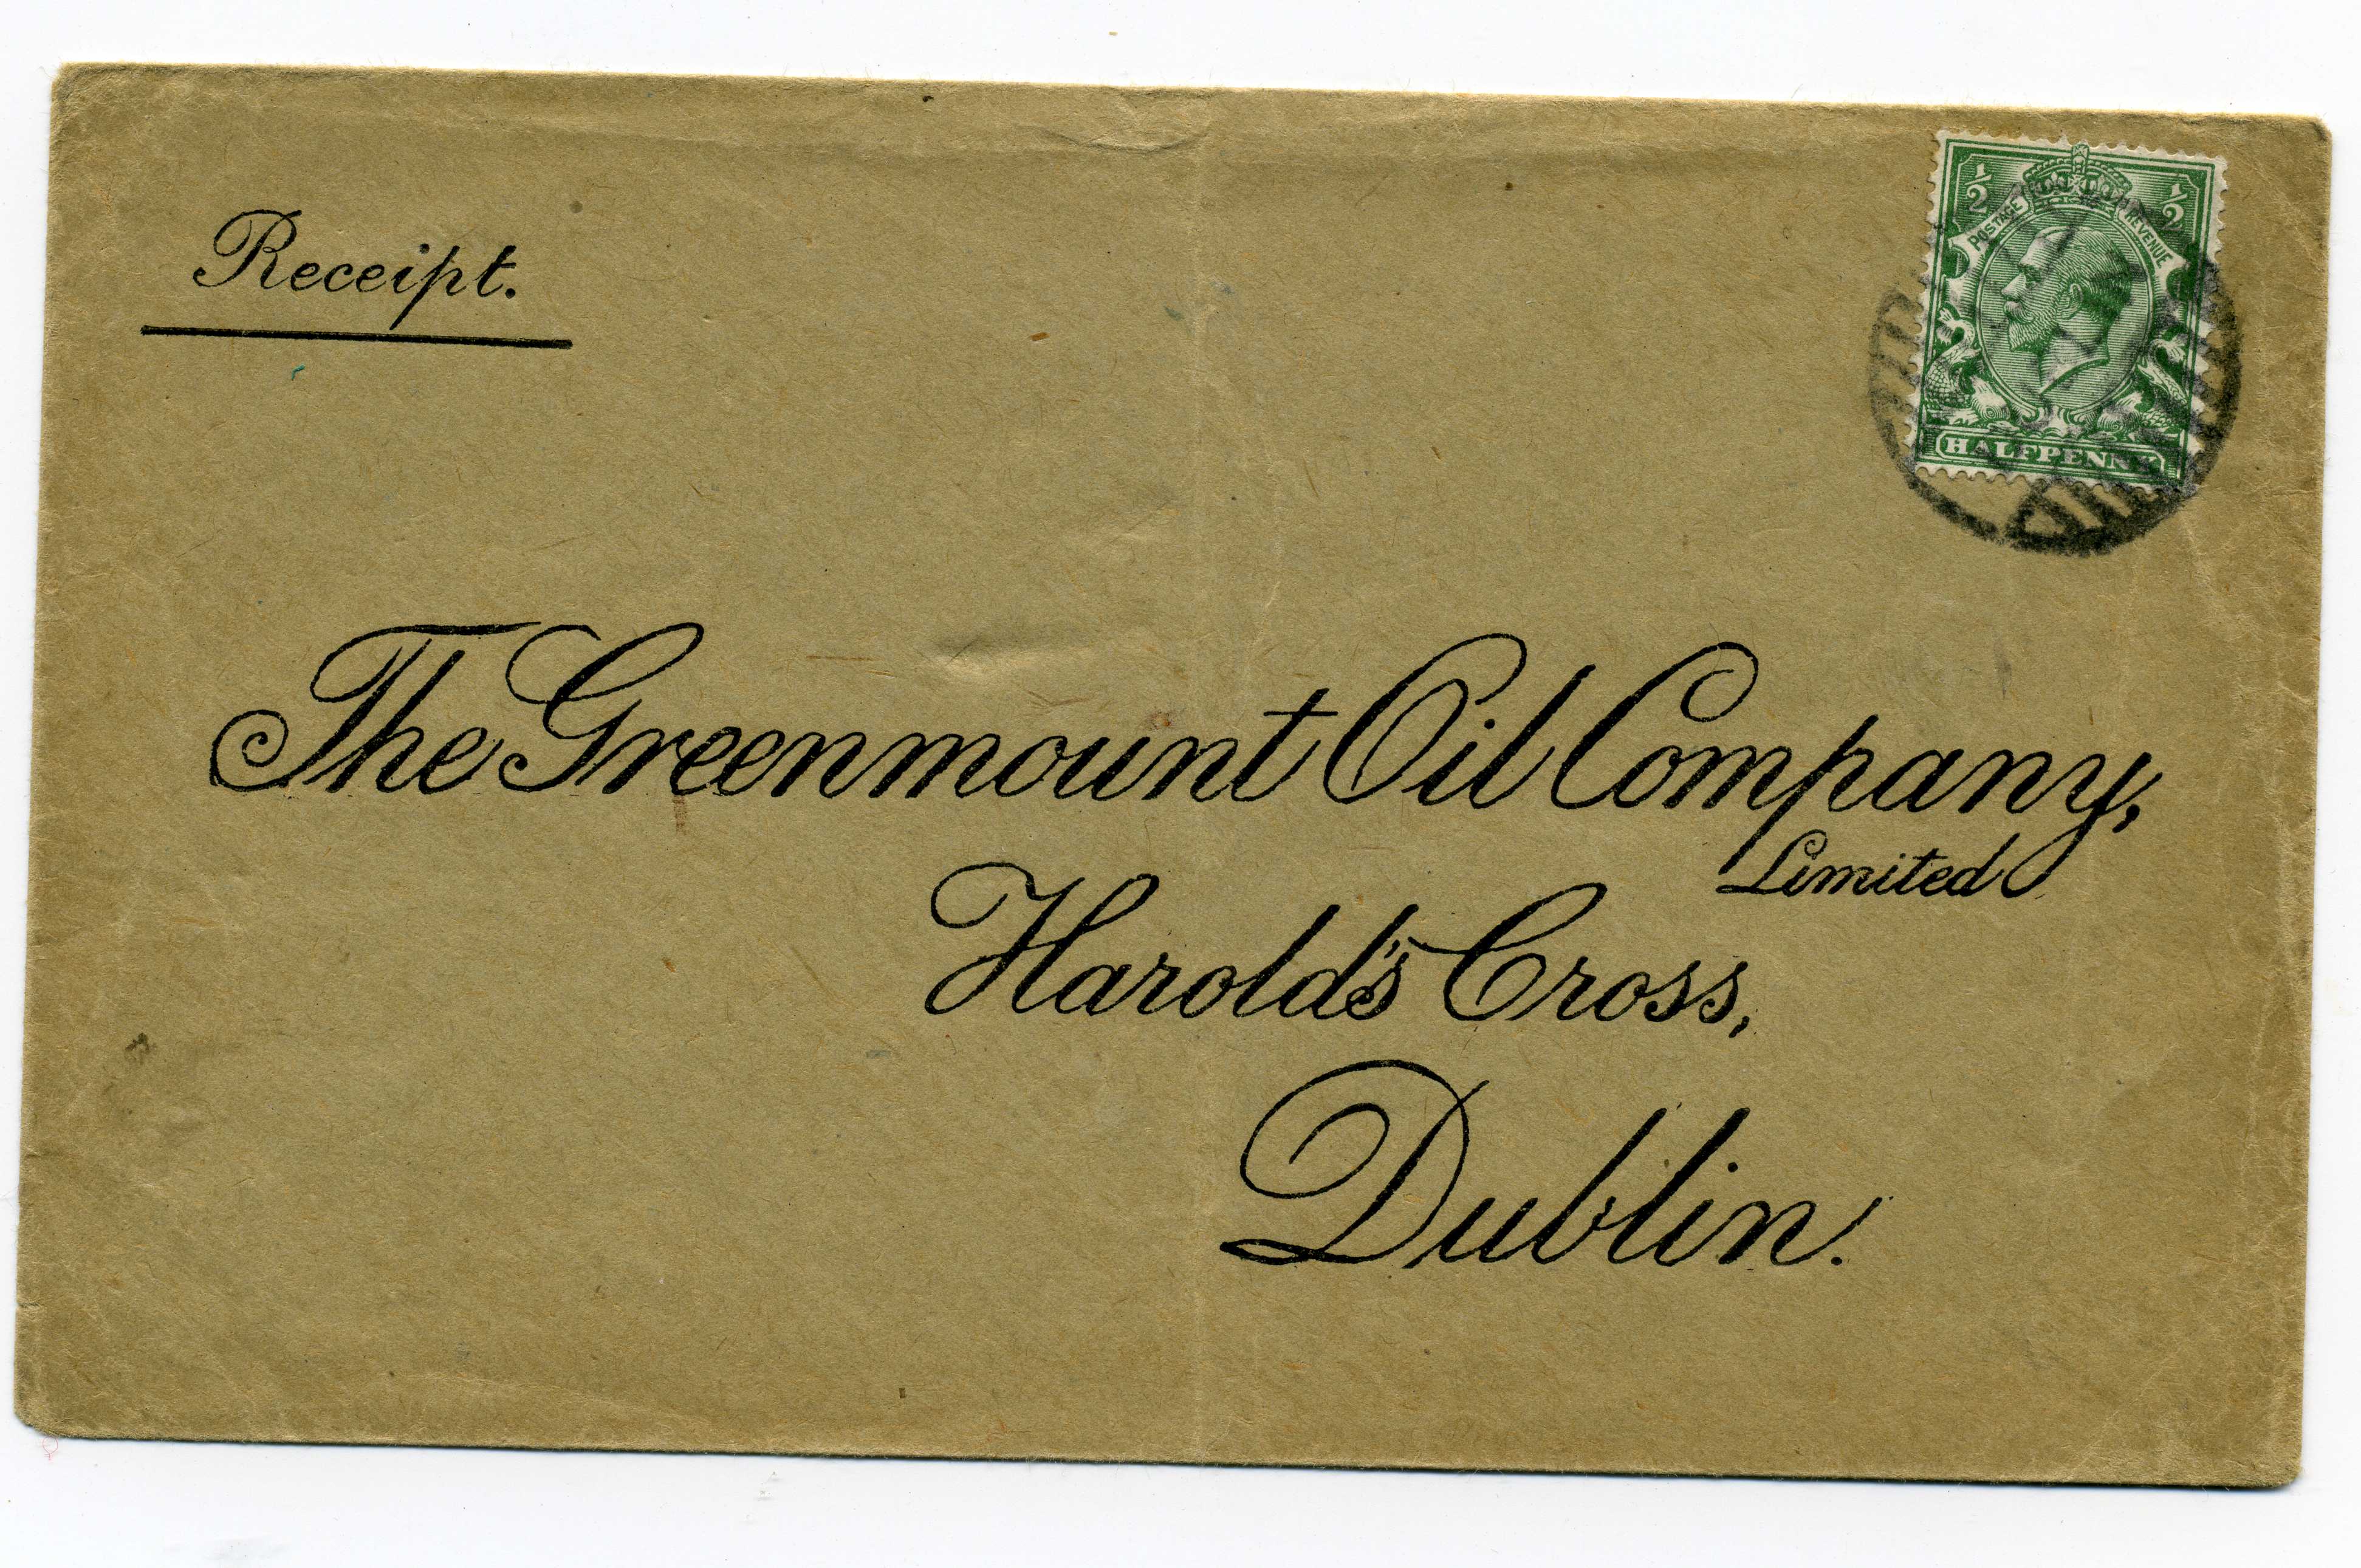 Receipt.
½ ½
POSTAGE REVENUE
HALFPENNY
The Greenmount Oil Company,
Limited
Harold's Cross,
Dublin.